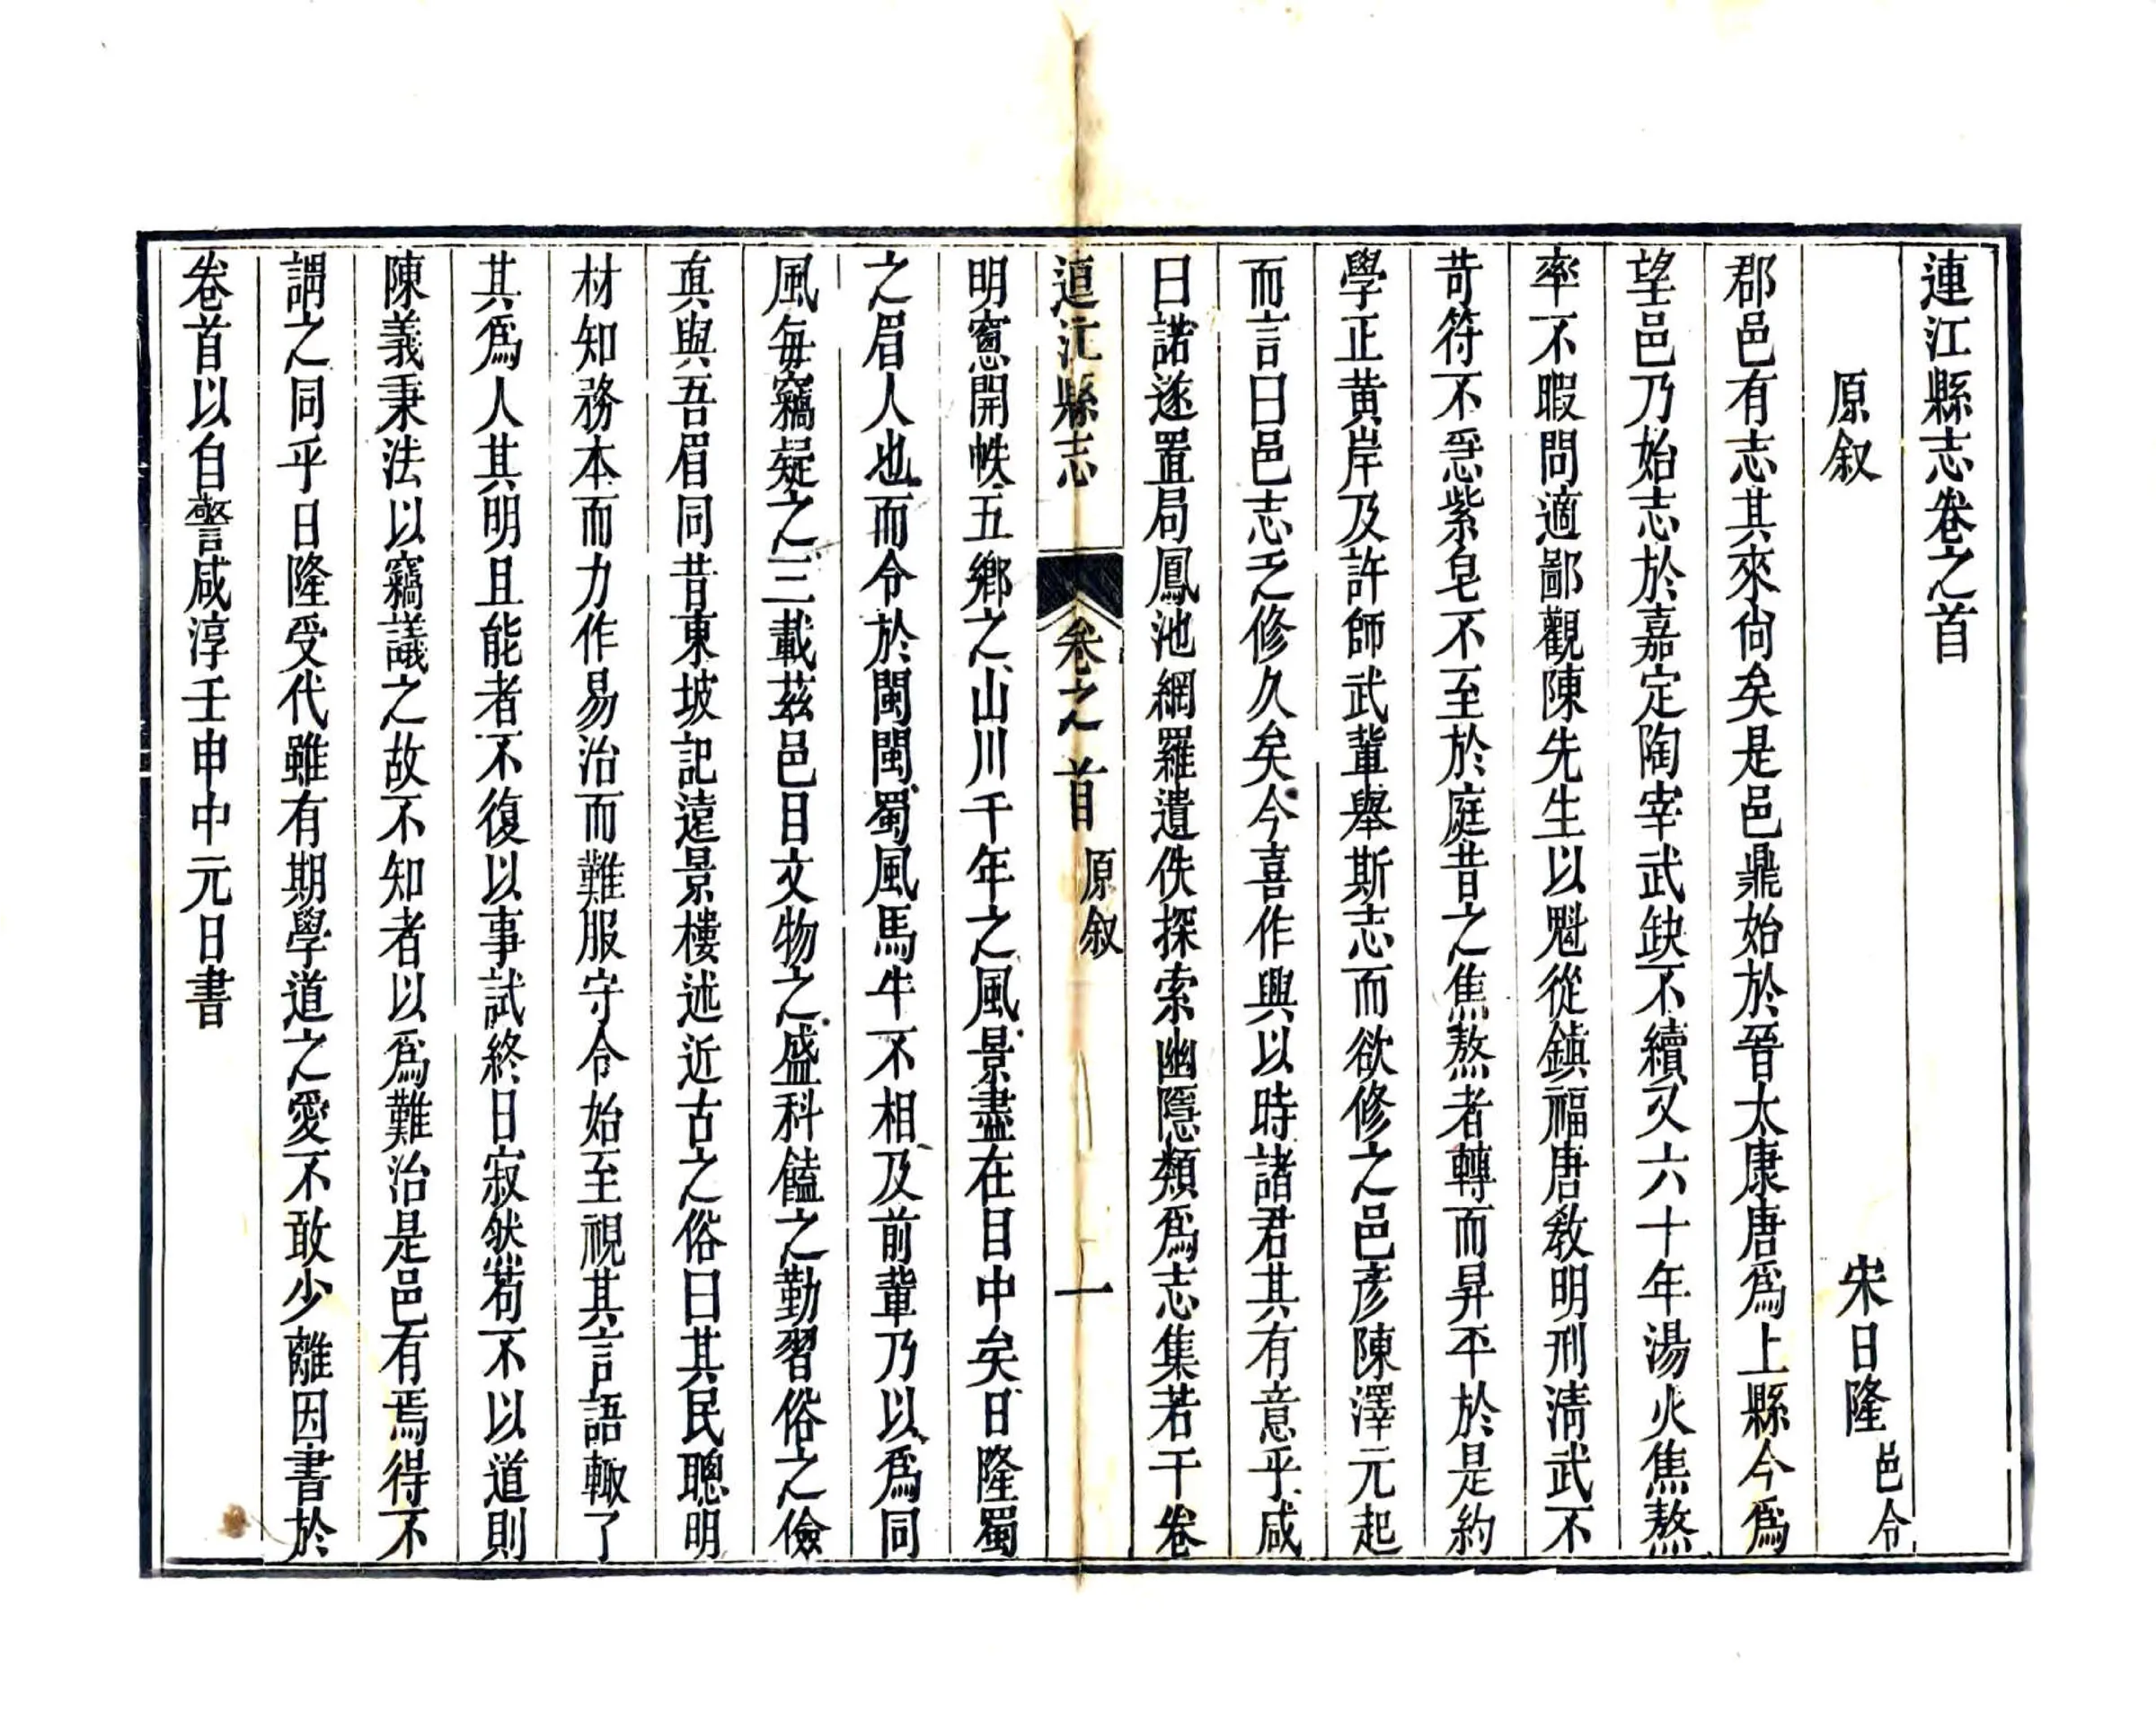 連江縣志卷之首
原叙
宋日隆邑令
郡邑有志其來尙矣是邑鼎始於晉太康唐爲上縣今爲
望邑乃始志於嘉定陶宰武缺不續又六十年湯火焦熬
率不暇問適鄙觀陳先生以魁從鎮福唐敎明刑清武不
苛符不惡紫皂不至於庭昔之焦熬者轉而昇平於是約
學正黄岸及許師武輩舉斯志而欲修之邑彥陳澤元起
而言曰邑志之修久矣今喜作興以時諸君其有意乎咸
曰諾遂置局鳳池網羅遺佚探索幽隱類爲志集若干卷
連江縣志 卷之首 原叙 一
明窻開帙五鄉之山川千年之風景盡在目中矣日隆蜀
之眉人也而令於閩閩蜀風馬牛不相及前輩乃以爲同
風每竊疑之三載茲邑目文物之盛科饁之勤習俗之儉
真與吾眉同昔東坡記遠景樓述近古之俗曰其民聰明
材知務本而力作易治而難服守令始至視其言語輙了
其爲人其明且能者不復以事試終日寂然苟不以道則
陳義秉法以竊議之故不知者以爲難治是邑有焉得不
謂之同乎日隆受代雖有期學道之愛不敢少離因書於
卷首以自警咸淳壬申中元日書